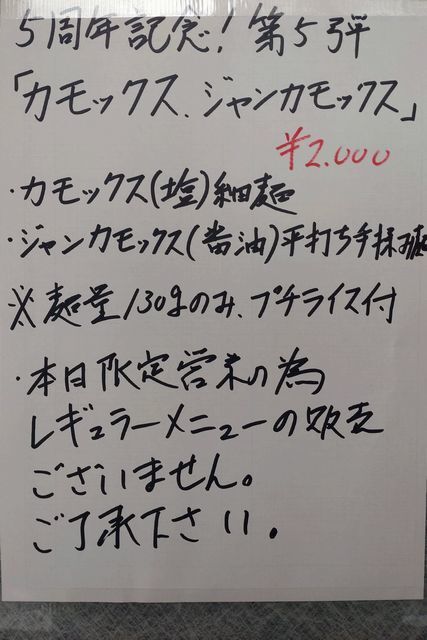 5周年記念!第5弾
「カモックス、ジャンカモックス」
¥2.000
・カモックス(塩)細麺
・ジャンカモックス(醤油)平打ち手揉み麺
※麺量130gのみ、プチライス付
・本日限定営業の為
レギュラーメニューの販売
ございません。
ご了承下さい。